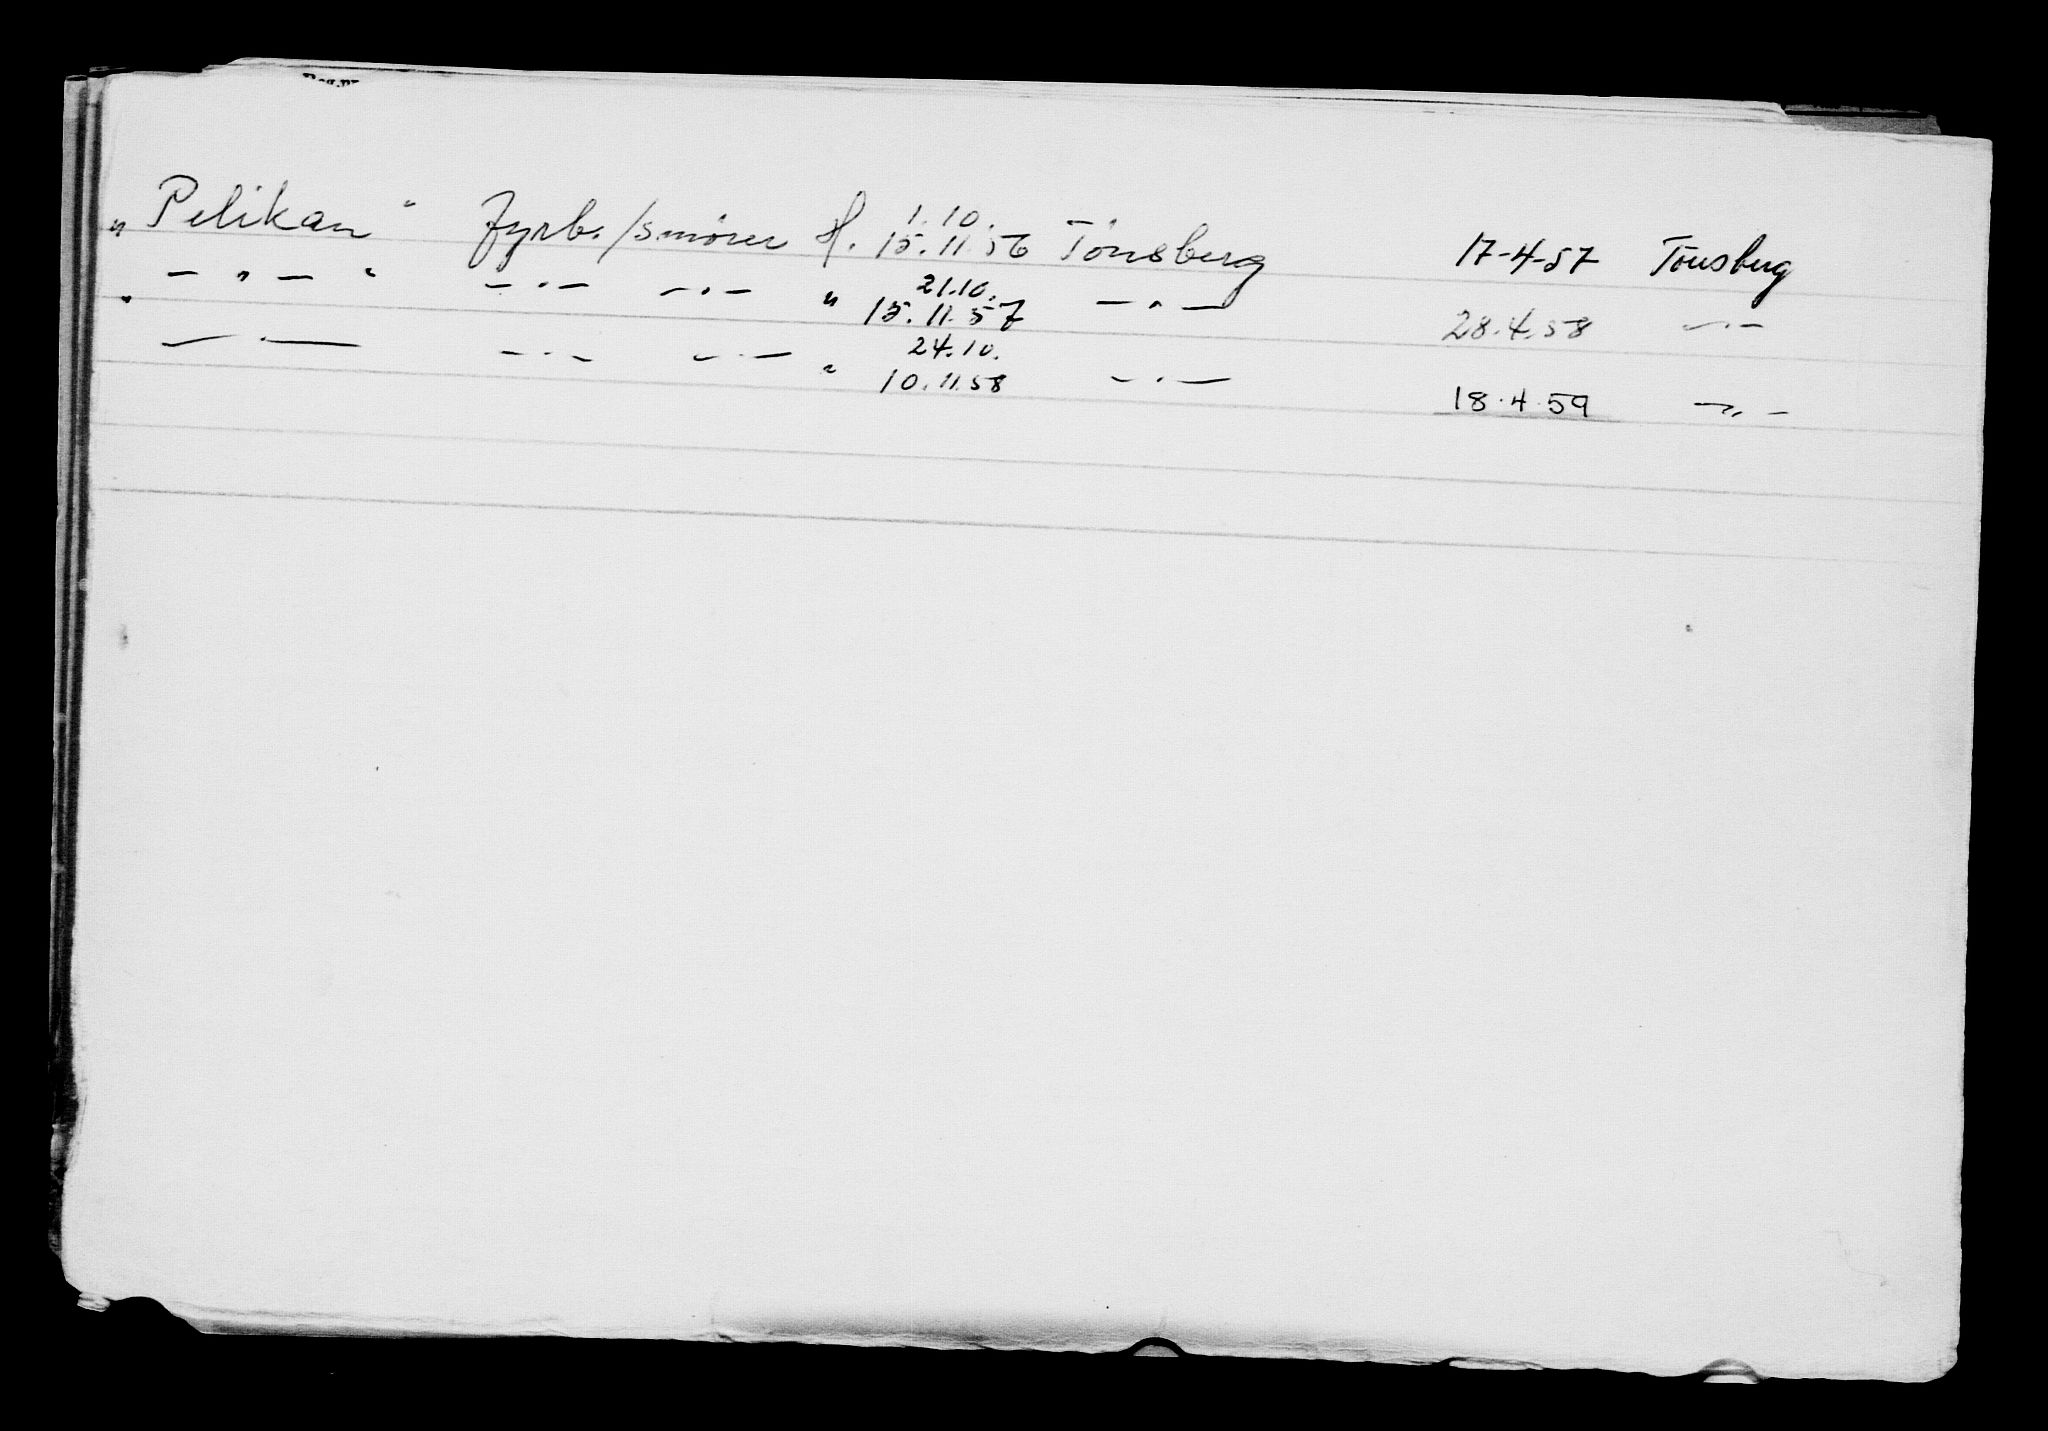 „Pelikan" Fyrb./smörer H. 1.10. 15.11.56 Tönsberg 17-4-57 Tönsberg
„ — " — " — " — — " — " 21.10. 15.11.57 — " — 28.4.58 — " —
— " — — " — — " — " 24.10. 10.11.58 — " — 18.4.59 — " —